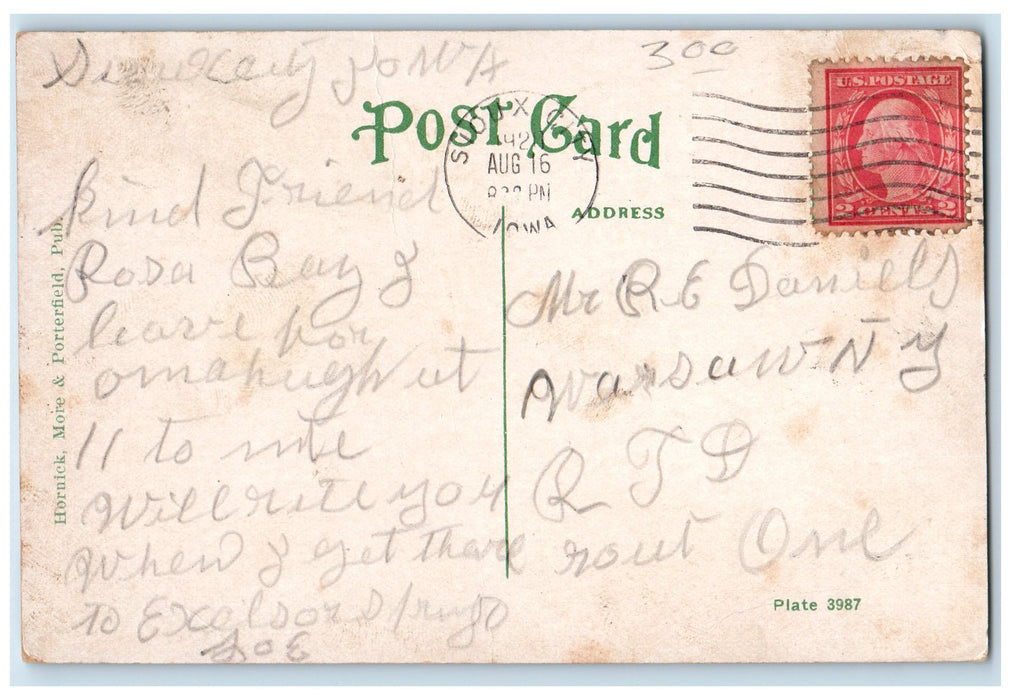 Siouxcity IoWA
300
Post Card
SIOUX CITY
AUG 16
PM
IOWA
U.S. POSTAGE
2 CENTS 2
ADDRESS
kind Friend
Rosa Bay I
leave for
omahugh at
11 to nite
Will rite you
When I get thare
to Excelsor Spring
JOE
Mr R E Daniels
Warsaw N y
R F D
rout One
Hornick, More & Porterfield, Pub.
Plate 3987